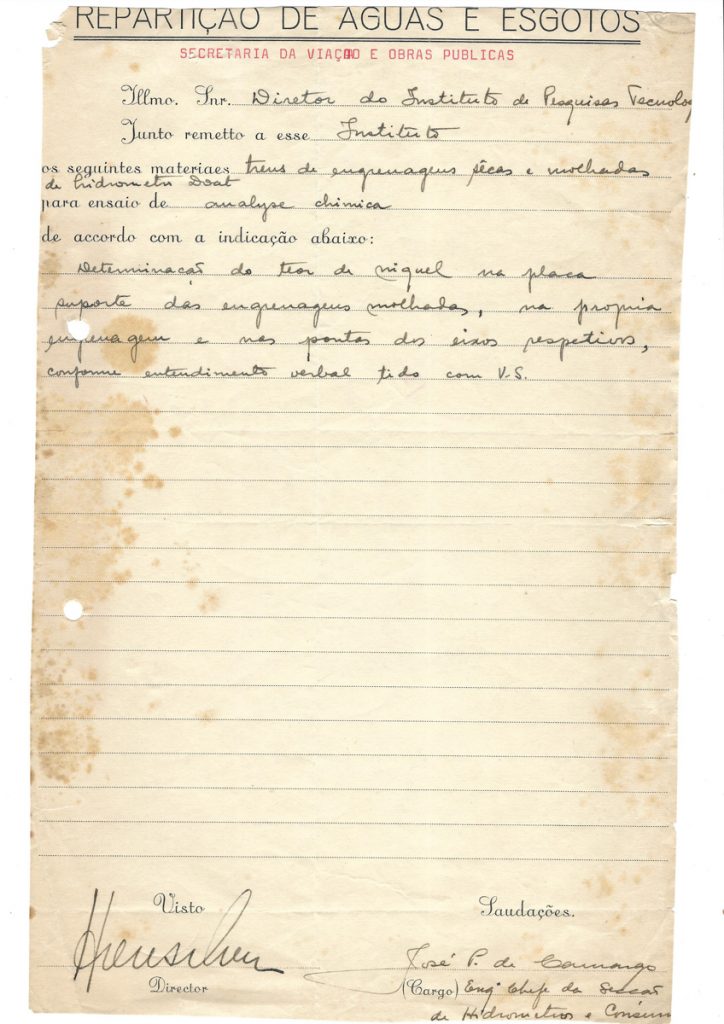 REPARTIÇÃO DE AGUAS E ESGOTOS
SECRETARIA DA VIAÇÃO E OBRAS PUBLICAS
Illmo. Snr. Diretor do Instituto de Pesquisas Tecnolog
Junto remetto a esse Instituto
os seguintes materiaes trens de engrenagens sêcas e molhadas
de hidrometro
para ensaio de analyse chimica
de accordo com a indicação abaixo:
Determinação do teor de niquel na placa
suporte das engrenagens molhadas, na propria
engrenagem e nas pontas dos eixos respetivos,
conforme entendimento verbal tido com V.S.
Visto
Saudações.
José P. de Camargo
Director
(Cargo) Engº Chefe da Secção
de Hidrometros e Consum